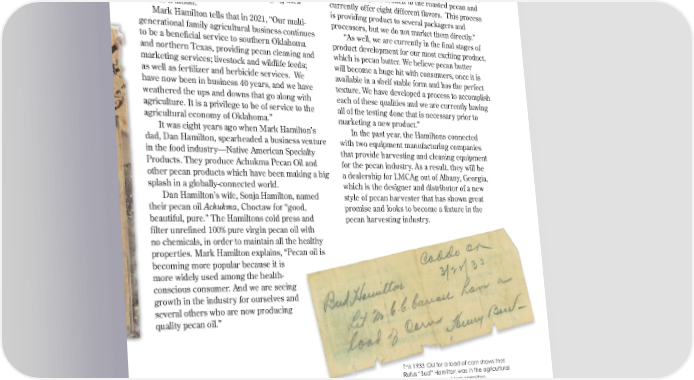 Mark Hamilton tells that in 2021, "Our multi-
generational family agricultural business continues
to be a beneficial service to southern Oklahoma
and northern Texas, providing pecan cleaning and
marketing services; livestock and wildlife feeds;
as well as fertilizer and herbicide services. We
have now been in business 40 years, and we have
weathered the ups and downs that go along with
agriculture. It is a privilege to be of service to the
agricultural economy of Oklahoma."
It was eight years ago when Mark Hamilton's
dad, Dan Hamilton, spearheaded a business venture
in the food industry—Native American Specialty
Products. They produce Achukma Pecan Oil and
other pecan products which have been making a big
splash in a globally-connected world.
Dan Hamilton's wife, Sonja Hamilton, named
their pecan oil Achukma, Choctaw for "good,
beautiful, pure." The Hamiltons cold press and
filter unrefined 100% pure virgin pecan oil with
no chemicals, in order to maintain all the healthy
properties. Mark Hamilton explains, "Pecan oil is
becoming more popular because it is
more widely used among the health-
conscious consumer. And we are seeing
growth in the industry for ourselves and
several others who are now producing
quality pecan oil."
to the roasted pecan and
currently offer eight different flavors. This process
is providing product to several packagers and
processors, but we do not market them directly."
"As well, we are currently in the final stages of
product development for our most exciting product,
which is pecan butter. We believe pecan butter
will become a huge hit with consumers, once it is
available in a shelf stable form and has the perfect
texture. We have developed a process to accomplish
each of these qualities and we are currently having
all of the testing done that is necessary prior to
marketing a new product."
In the past year, the Hamiltons connected
with two equipment manufacturing companies
that provide harvesting and cleaning equipment
for the pecan industry. As a result, they will be
a dealership for LMCAg out of Albany, Georgia,
which is the designer and distributor of a new
style of pecan harvester that has shown great
promise and looks to become a fixture in the
pecan harvesting industry.
Caddo
Bud Hamilton
Let
have a
load of Corn
Henry
1933 for a load of corn shows that
Rufus "Bud" Hamilton was in the agricultural